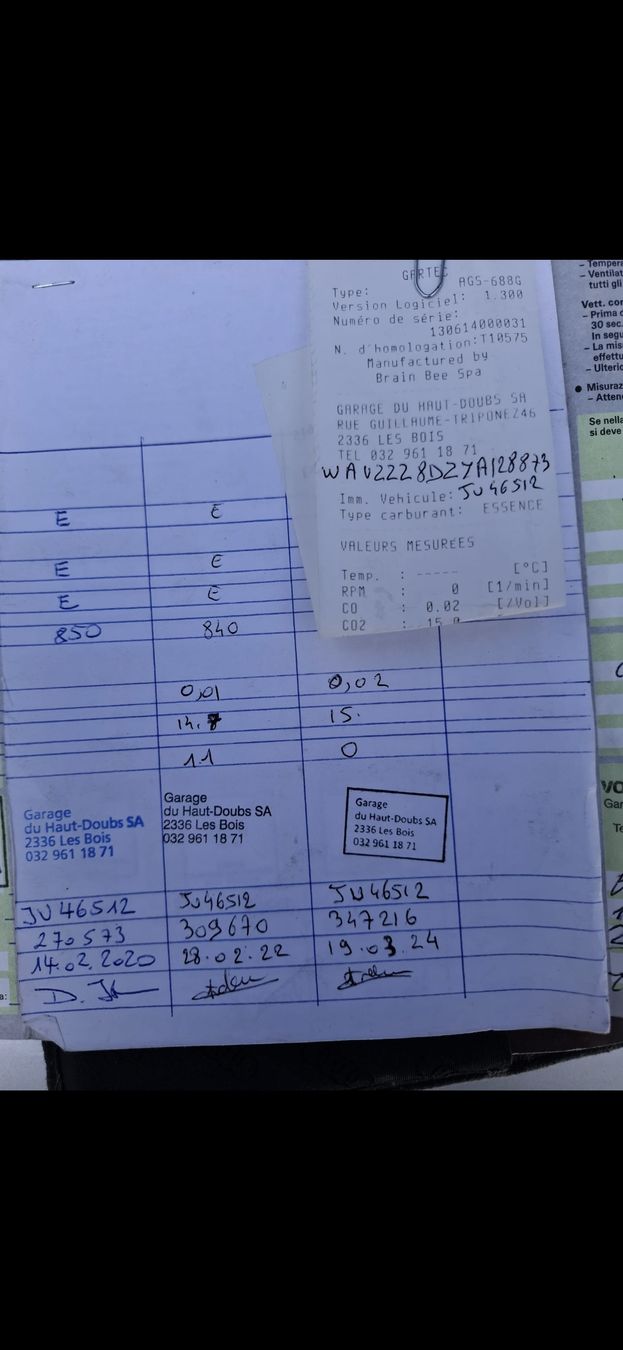 GARTEC
Type: AGS-688G
Version Logiciel: 1.300
Numéro de série:
130614000031
N. d'homologation:T10575
Manufactured by
Brain Bee Spa
GARAGE DU HAUT-DOUBS SA
RUE GUILLAUME-TRIPONEZ46
2336 LES BOIS
TEL 032 961 18 71
WAUZZZ8DZYA128873
Imm. Vehicule: JU46512
Type carburant: ESSENCE
VALEURS MESUREES
Temp. : ----- [°C]
RPM : 0 [1/min]
CO : 0.02 [/Vol]
CO2 : 15.0
E E
E E
E E
850 840
0,01 0,02
14.7 15.
11 0
Garage
du Haut-Doubs SA
2336 Les Bois
032 961 18 71
Garage
du Haut-Doubs SA
2336 Les Bois
032 961 18 71
Garage
du Haut-Doubs SA
2336 Les Bois
032 961 18 71
JU 46512 JU46512 JU 46512
270573 309670 347216
14.02.2020 28.02.22 19.03.24
- Tempera
- Ventilat
tutti gli
Vett. con
- Prima d
30 sec.
In segu
- La mis
effettu
- Ulterio
● Misuraz
- Atten
Se nella
si deve
VO
Gar
Te
a: